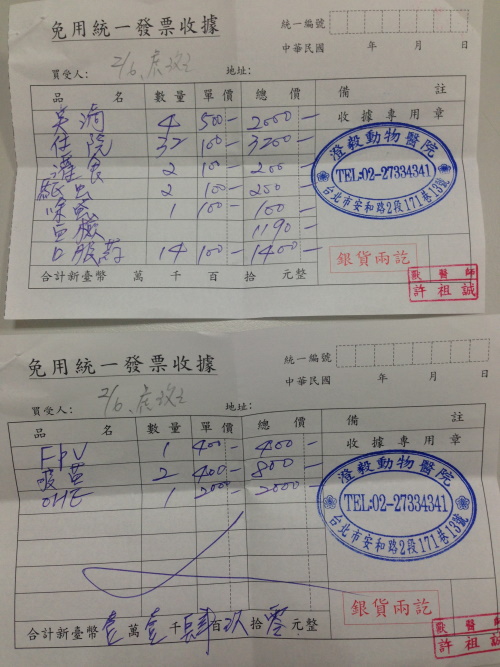 免用統一發票收據
統一編號
中華民國 年 月 日
買受人: 2/6 地址:
品名 數量 單價 總價 備註
滴 4 500- 2000-
收據專用章
住院 32 100- 3200-
灌食 2 100- 200-
2 100- 200-
除蚤 1 100- 100-
血檢 1190-
口服药 14 100- 1400-
澄毅動物醫院
TEL:02-27334341
台北市安和路2段171巷13號
銀貨兩訖
獸醫師
許祖誠
合計新臺幣 萬 千 百 拾 元整
免用統一發票收據
統一編號
中華民國 年 月 日
買受人: 2/6 地址:
品名 數量 單價 總價 備註
FPV 1 400- 400-
收據專用章
2 400- 800-
OHE 1 2000- 2000-
澄毅動物醫院
TEL:02-27334341
台北市安和路2段171巷13號
銀貨兩訖
獸醫師
許祖誠
合計新臺幣 壹萬壹千肆百玖拾零元整